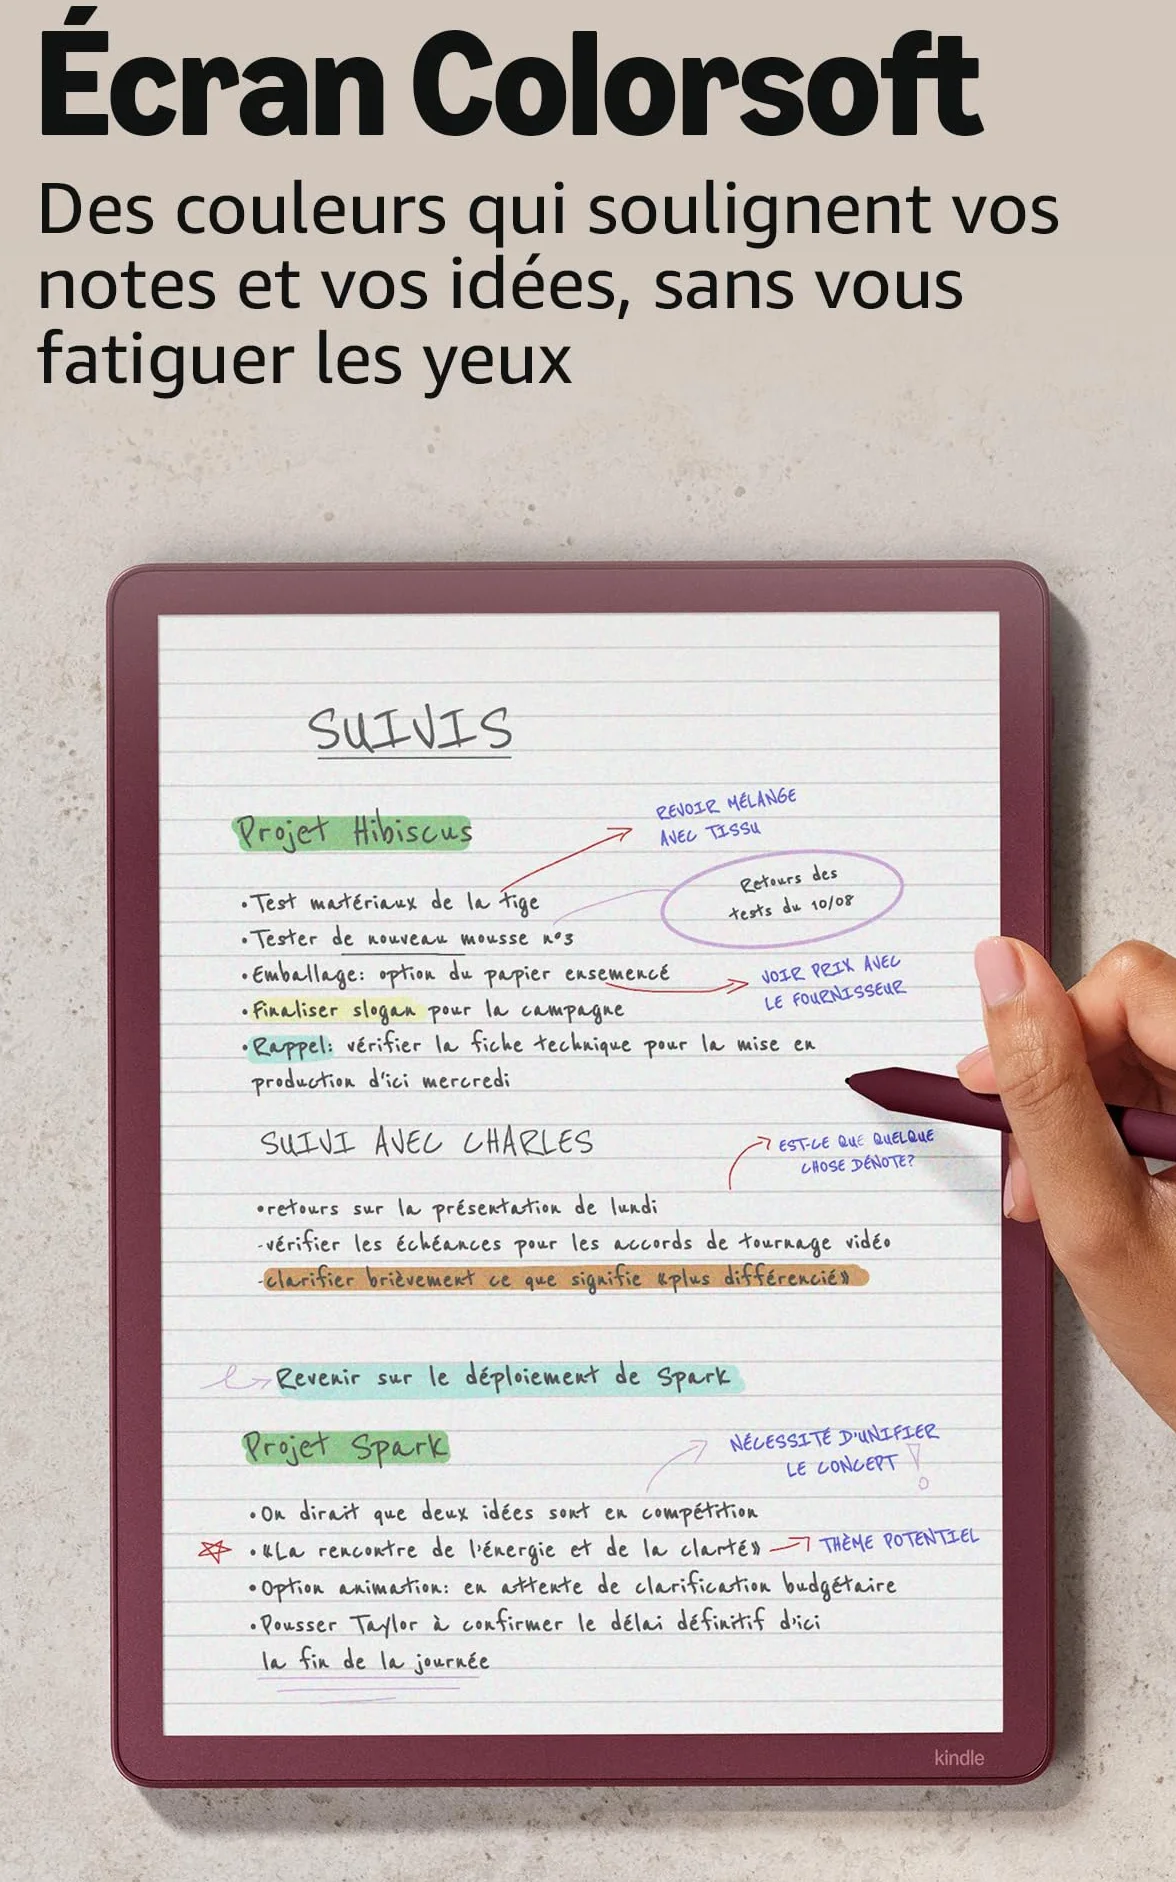 Écran Colorsoft
Des couleurs qui soulignent vos
notes et vos idées, sans vous
fatiguer les yeux
SUIVIS
Projet Hibiscus
REVOIR MÉLANGE
AVEC TISSU
Retours des
tests du 10/08
•Test matériaux de la tige
•Tester de nouveau mousse n°3
•Emballage: option du papier ensemencé
VOIR PRIX AVEC
LE FOURNISSEUR
•Finaliser slogan pour la campagne
•Rappel: vérifier la fiche technique pour la mise en
production d'ici mercredi
SUIVI AVEC CHARLES
EST-CE QUE QUELQUE
CHOSE DÉNOTE?
•retours sur la présentation de lundi
-vérifier les échéances pour les accords de tournage vidéo
-clarifier brièvement ce que signifie «plus différencié»
Revenir sur le déploiement de Spark
Projet Spark
NÉCESSITÉ D'UNIFIER
LE CONCEPT !
•On dirait que deux idées sont en compétition
•«La rencontre de l'énergie et de la clarté»
THÈME POTENTIEL
•Option animation: en attente de clarification budgétaire
•Pousser Taylor à confirmer le délai définitif d'ici
la fin de la journée
kindle